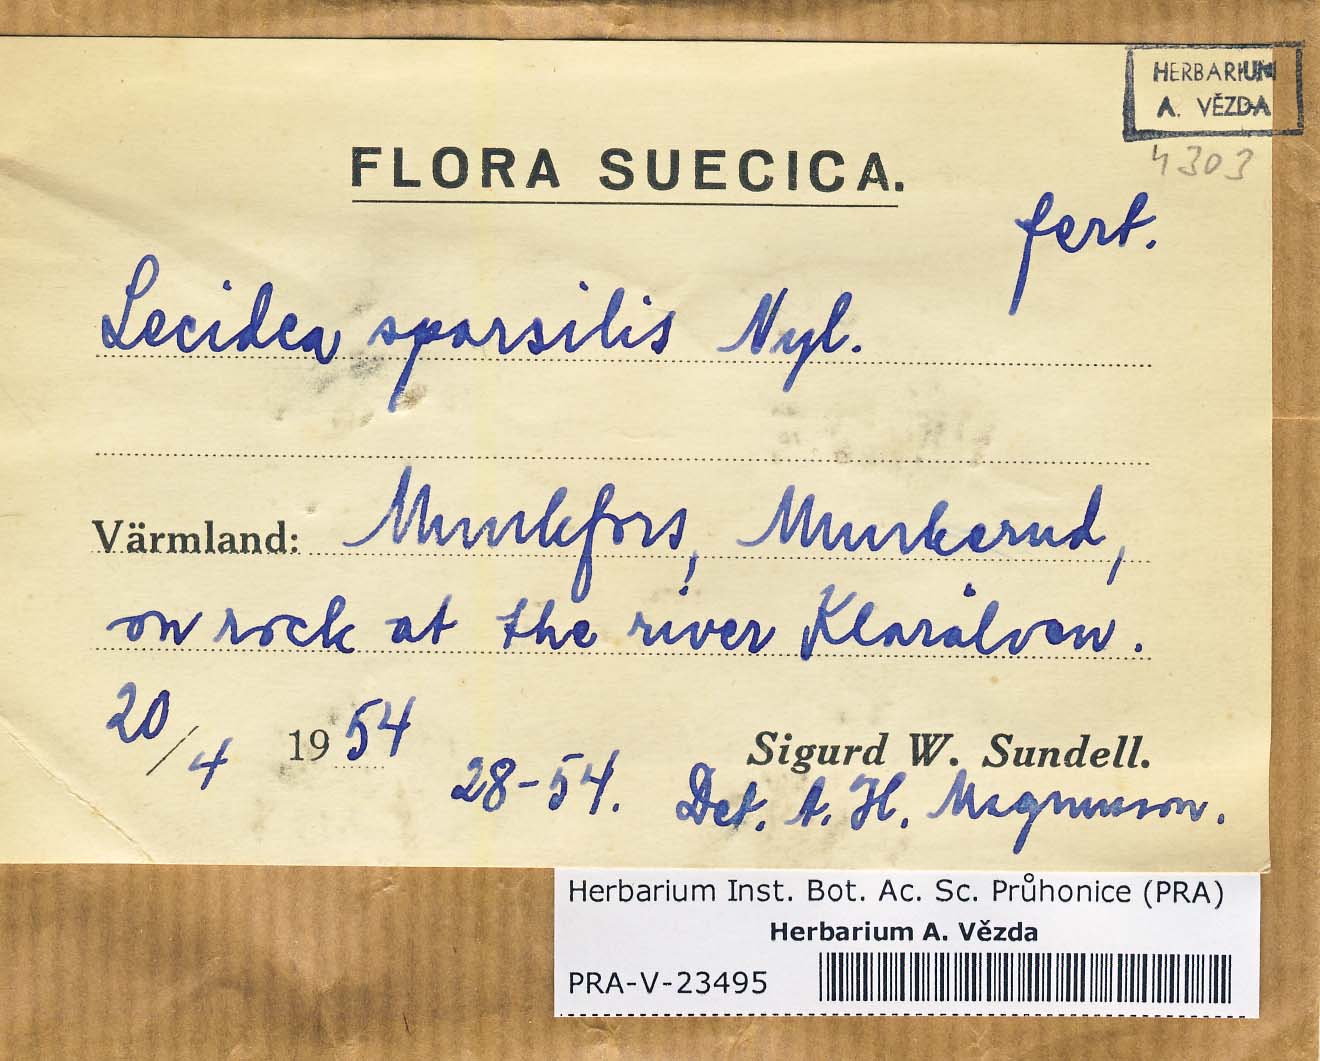 HERBARIUM
A. VĚZDA
4303
FLORA SUECICA.
fert.
Lecidea sparsilis Nyl.
Värmland: Munkfors, Munkerud,
on rock at the river Klarälven.
20/4 1954
28-54.
Sigurd W. Sundell.
Det. A. H. Magnusson.
Herbarium Inst. Bot. Ac. Sc. Průhonice (PRA)
Herbarium A. Vězda
PRA-V-23495